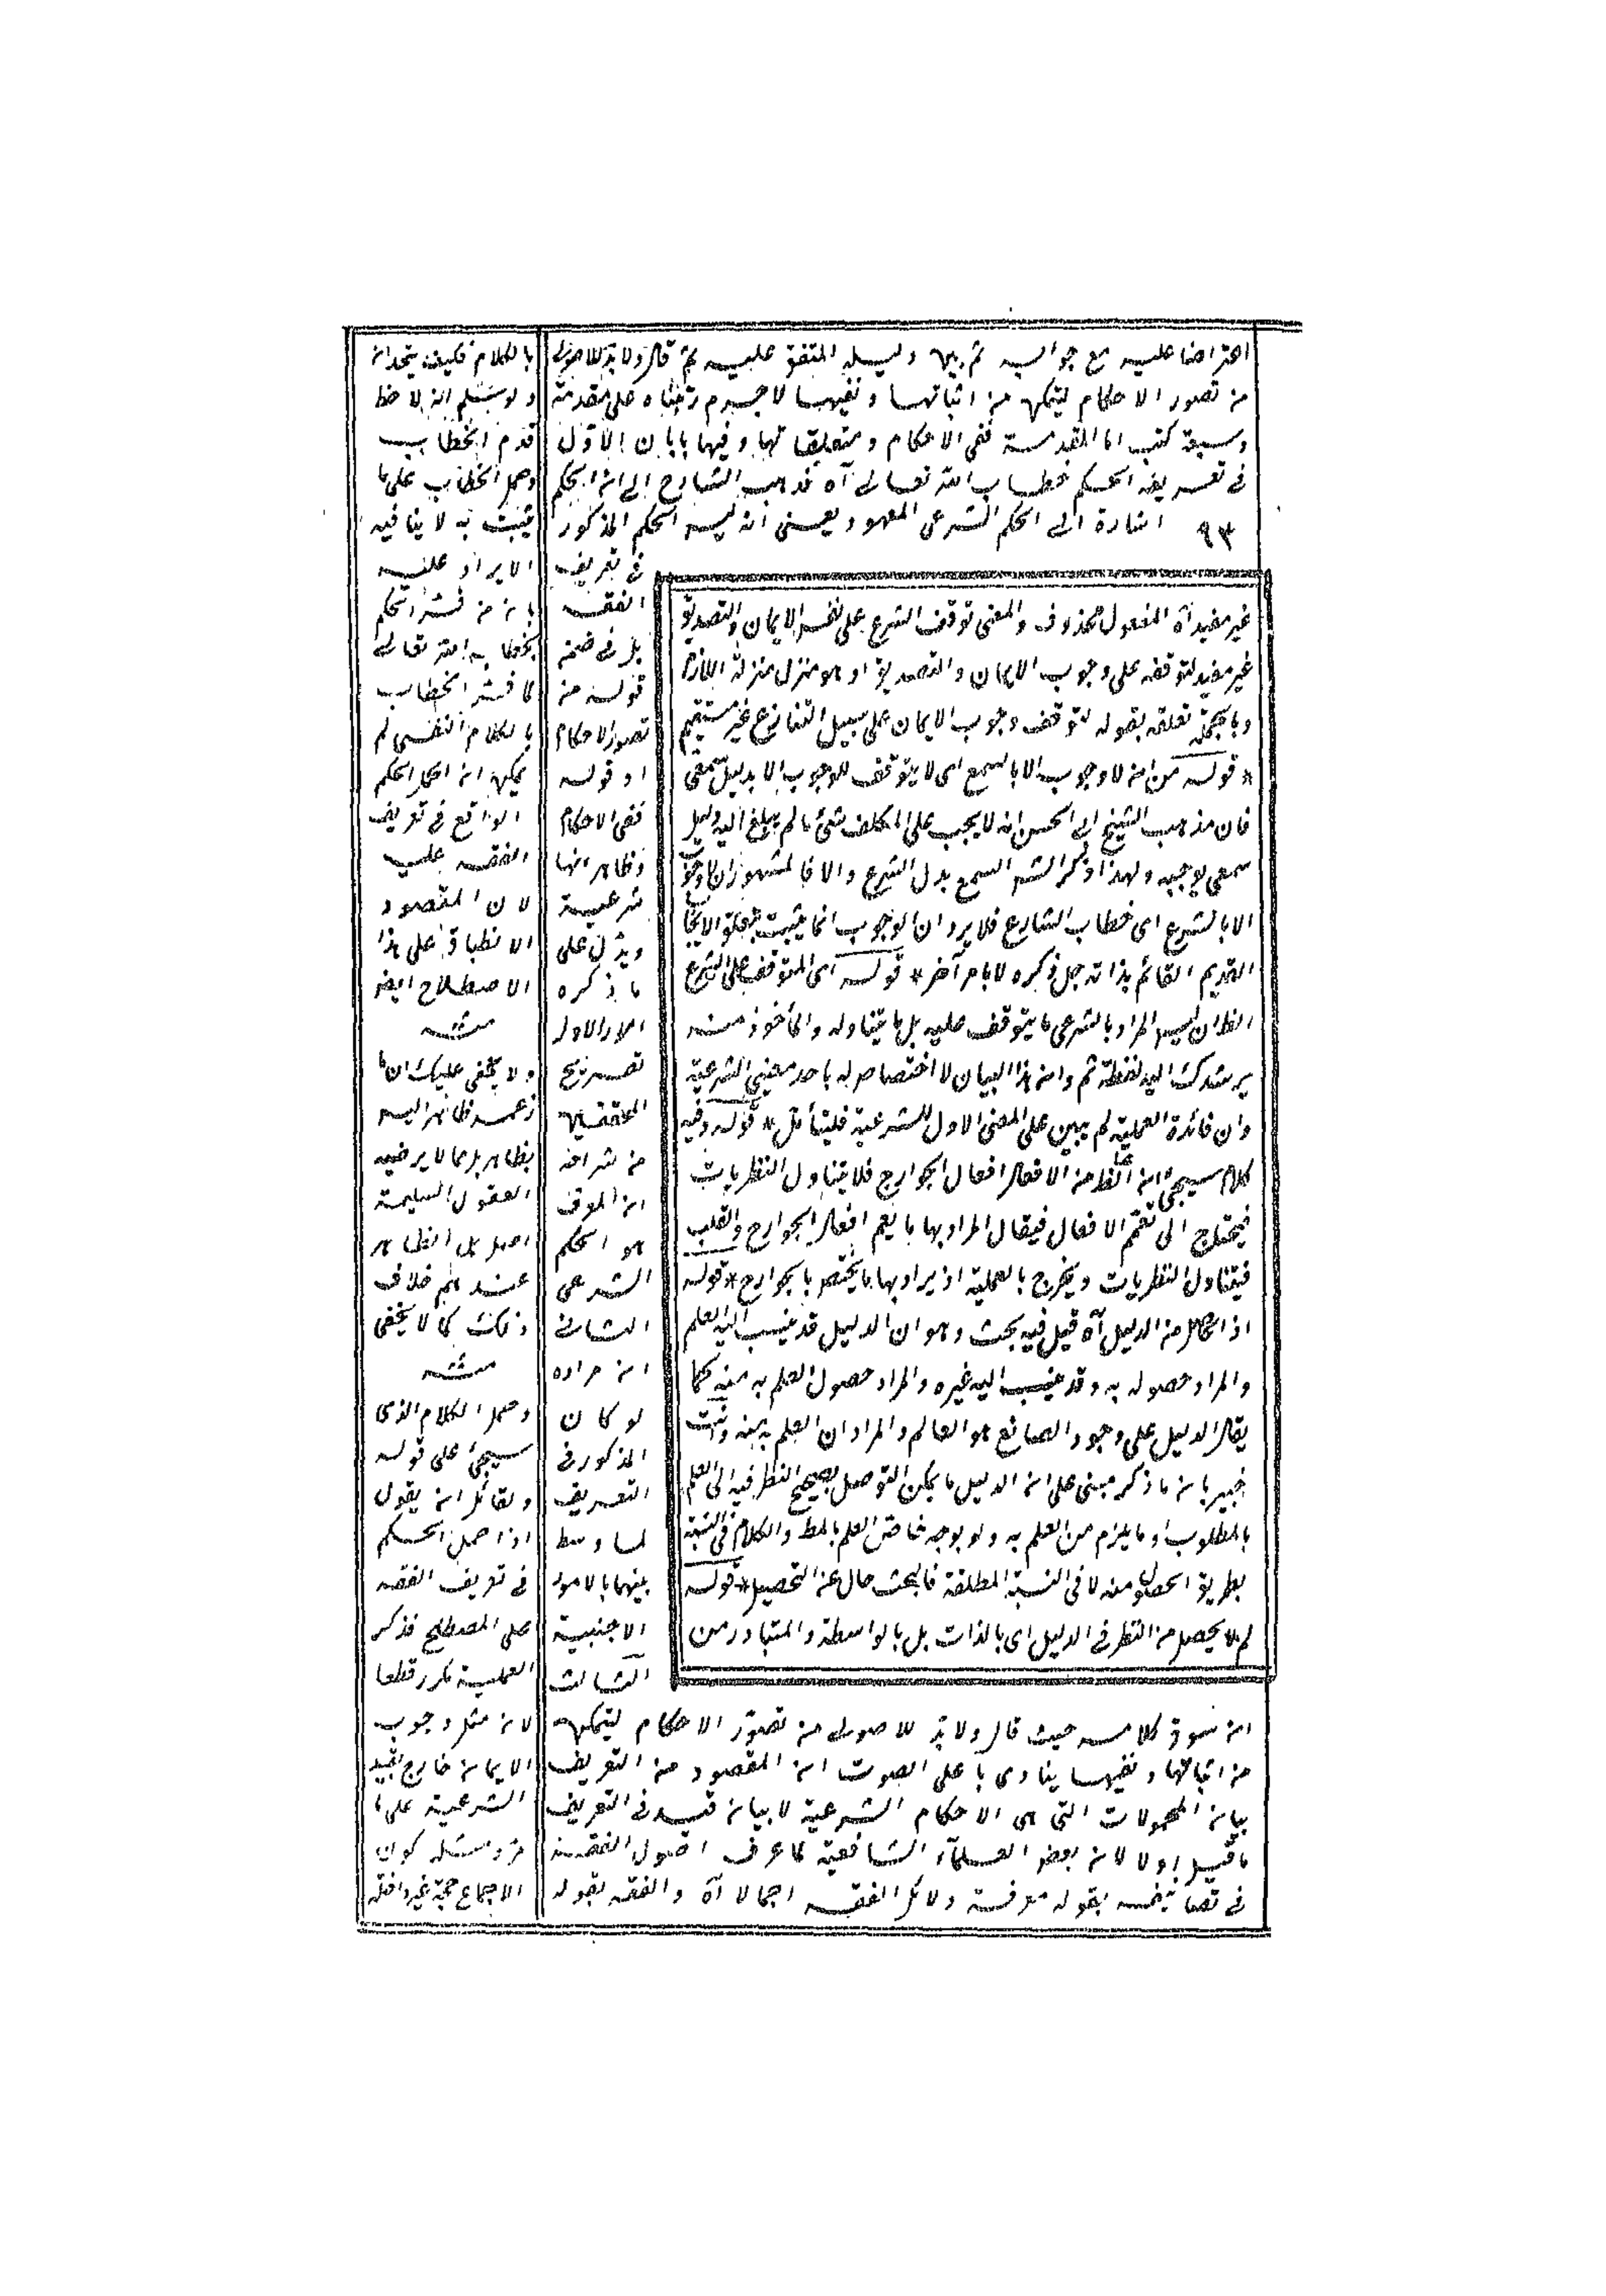 اعتراضا عليه مع جوابه ثم بين دليله المتفق عليه ثم قال ولا بد للاصولى
من تصور الاحكام ليتمكن من اثباتها ونفيها لا جرم رتبناه على مقدمة
وسبعة كتب اما المقدمة ففى الاحكام ومتعلقاتها وفيها بابان الاول
فى تعريف الحكم خطاب الله تعالى آه فذهب الشارح الى ان الحكم
٩٣ اشارة الى الحكم الشرعى المعهود يعنى انه ليس الحكم المذكور
فى تعريف
الفقه
بل فى ضمن
قوله من
تصور الاحكام
او قوله
ففى الاحكام
وظاهر انها
شرعية
ويدل على
ما ذكره
امور الاول
تصريح
المحققين
من شراحه
ان المعرف
هو الحكم
الشرعى
الثانى
ان مراده
لو كان
المذكور فى
التعريف
لما وسط
بينهما بالامور
الاجنبية
الثالث
ان سوق كلامه حيث قال ولا بد للاصولى من تصور الاحكام ليتمكن
من اثباتها ونفيها ينادى با على الصوت ان المقصود من التعريف
بيان المحمولات التى هى الاحكام الشرعية لا بيان قيد فى التعريف
ما قيل اولا لان بعض العلمآء الشافعية لما عرف اصول الفقه
فى تصانيفه بقوله معرفة دلائل الفقه اجمالا آه والفقه بقوله
غير مفيد آه المفعول محذوف والمعنى توقف الشرع على نفس الايمان والتصديق
غير مفيد لتوقفه على وجوب الايمان والتصديق او هو منزل منزلة اللازم
وبالجملة تعلقه بقوله لتوقف وجوب الايمان على سبيل التنازع غير مستقيم
* قوله من انه لا وجوب الا بالسمع اى لا يتوقف للوجوب الا بدليل سمعى
فان مذهب الشيخ ابى الحسن انه لا يجب على المكلف شئ ما لم يبلغ اليه دليل
سمعى يوجبه ولهذا ذكر الش السمع بدل الشرع والا فالمشهور ان لا وجوب
الا بالشرع اى خطاب الشارع فلا يرد ان الوجوب انما يثبت بتعلق الايجاب
القديم القائم بذاته جل ذكره لا بامر آخر * قوله اى المتوقف على الشرع
الظ ان ليس المراد بالشرعى ما يتوقف عليه بل ما يتناوله والمأخوذ منه
يرشدك اليه لفظة ثم وان هذا البيان لا اختصاص له باحد معنيى الشرعية
وان فائدة العملية لم يبين على المعنى الاول للشرعية فليتأمل * قوله وفيه
كلام سيجئ ان الظ من الافعال افعال الجوارح فلا يتناول النظريات
فيحتاج الى تعمم الافعال فيقال المراد بها ما يعم افعال الجوارح والقلب
فيتناول النظريات ويخرج بالعملية اذ يراد بها ما يختص بالجوارح * قوله
اذ الحاصل من الدليل آه قيل فيه بحث وهو ان الدليل قد ينسب اليه العلم
والمراد حصوله به وقد ينسب اليه غيره والمراد حصول العلم به منه كما
يقال الدليل على وجود الصانع هو العالم والمراد ان العلم به منه وانت
خبير بان ما ذكر مبنى على ان الدليل ما يمكن التوصل بصحيح النظر فيه الى العلم
بالمطلوب او ما يلزم من العلم به ولو بوجه خاص العلم بالمط والكلام فى النسبة
بطريق الحصول منه لا فى النسبة المطلقة فالبحث حال عن التحصيل * قوله
لم لا يحصل من النظر فى الدليل اى بالذات بل بالواسطة والمتبادر من
بالكلام فكيف يتحد ان
ولو سلم انه لاحظ
قدم الخطاب
وحمل الخطاب على ما
يثبت به لا ينافيه
الايراد عليه
بان من فسر الحكم
بخطاب الله تعالى
لما فسر الخطاب
بالكلام النفسى لم
يمكن ان الحكم
الواقع فى تعريف
الفقه عليه
لان المقصود
الانطباق على هذا
الاصطلاح ايض
منه
ولا يخفى عليك ان ما
زعمه ظاهرا ليس
بظاهر بل مما لا يرضيه
العقول السليمة
اصلا بل الظاهر
عندهم خلاف
ذلك كما لا يخفى
منه
وحمل الكلام الذى
سيجئ على قوله
ولقائل ان يقول
اذا حمل الحكم
فى تعريف الفقه
على المصطلح فذكر
العملية مكرر قطعا
لان مثل وجوب
الايمان خارج بقيد
الشرعية على ما
مر ومسئلة كون
الاجماع حجة غير داخلة